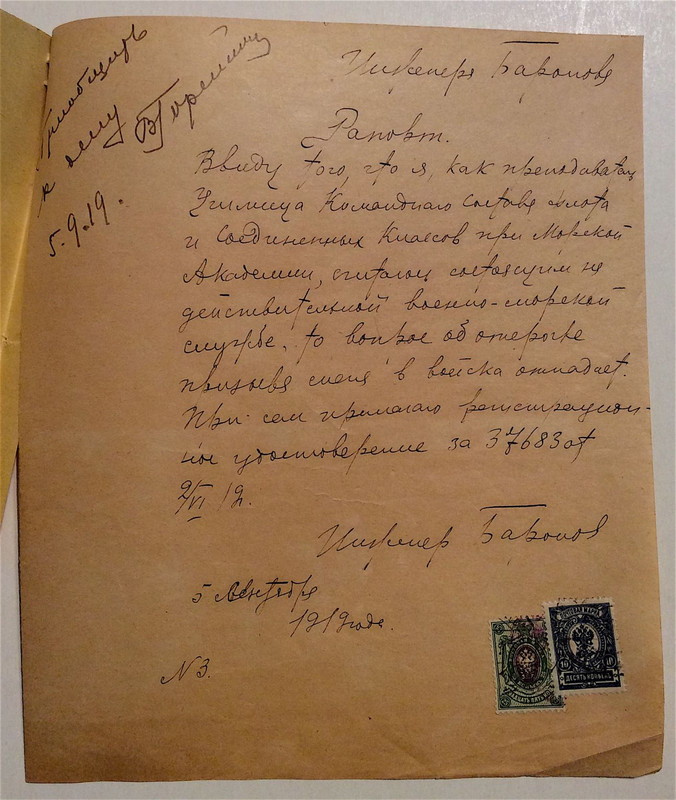 Приобщить
к делу
5.9.19.
Инженера Баронова
Рапорт.
Ввиду того, что я, как преподаватель
Училища Командного Состава Флота
и Соединенных Классов при Морской
Академии, считаюсь состоящим на
действительной военно-морской
службе, то вопрос об отсрочке
призыва меня в войска отпадает.
При сем прилагаю регистрацион-
ное удостоверение за 37683 от
2/VI 19.
Инженер Баронов
5 Сентября
1919 года.
N 3.
ПОЧТОВАЯ МАРКА
10
ДЕСЯТЬ КОПѢЕКЪ